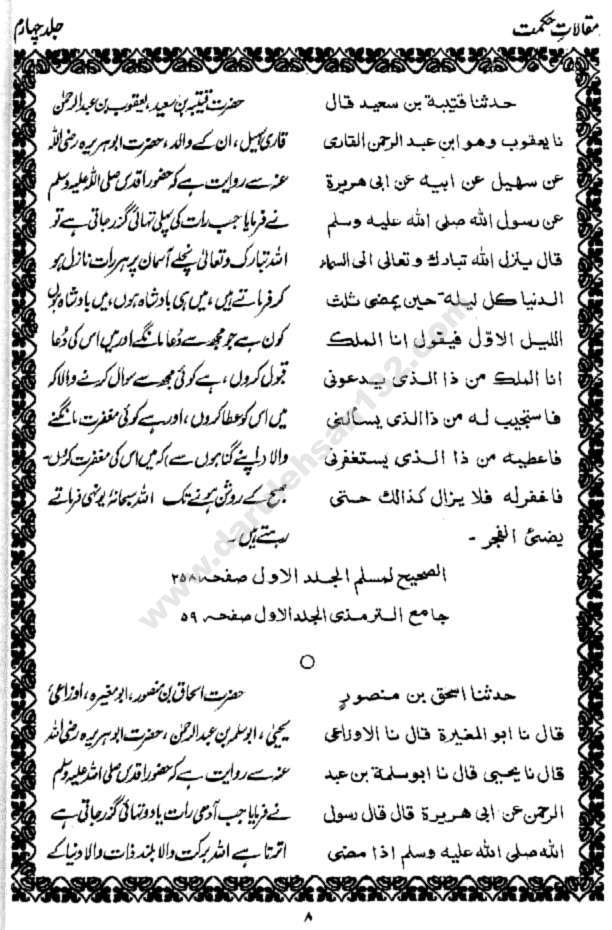 مقالاتِ حکمت
جلد چہارم
حدثنا قتيبة بن سعيد قال
نا يعقوب وهو ابن عبد الرحمن القارى
عن سهيل عن ابيه عن ابى هريرة
عن رسول الله صلى الله عليه وسلم
قال ينزل الله تبارك و تعالى الى السماء
الدنيا كل ليلة حين يمضى ثلث
الليل الاوّل فيقول انا الملك
انا الملك من ذا الذى يدعونى
فاستجيب له من ذا الذى يسالنى
فاعطيه من ذا الذى يستغفرنى
فاغفرله فلا يزال كذالك حتى
يضئ الفجر -
حضرت قتیبہ بن سعید، یعقوب بن عبدالرحمٰن
قاری سہیل، ان کے والد، حضرت ابوہریرہ رضی اللہ
عنہ سے روایت ہے کہ حضور اقدس صلی اللہ علیہ وسلم
نے فرمایا جب رات کی پہلی تہائی گزر جاتی ہے تو
اللہ تبارک و تعالیٰ نچلے آسمان پر ہر رات نازل ہو
کر فرماتے ہیں، میں ہی بادشاہ ہوں، میں بادشاہ ہوں
کون ہے جو مجھ سے دُعا مانگے اور میں اس کی دُعا
قبول کروں، ہے کوئی مجھ سے سوال کرنے والا کہ
میں اس کو عطا کروں، اور ہے کوئی مغفرت مانگنے
والا (اپنے گناہوں سے) کہ میں اس کی مغفرت کروں۔
صبح کے روشن ہونے تک اللہ سبحانہٗ یونہی فرماتے
رہتے ہیں۔
الصحيح لمسلم المجلد الاول صفحہ ۲۵۸
جامع الترمذى المجلد الاول صفحہ ۵۹
حدثنا اسحٰق بن منصورٍ
قال نا ابو المغيرة قال نا الاوزاعى
قال نا يحيىٰ قال نا ابوسلمة بن عبد
الرحمن عن ابى هريرة قال قال رسول
الله صلى الله عليه وسلم اذا مضى
حضرت اسحاق بن منصور، ابو مغیرہ، اوزاعی
یحییٰ، ابوسلمہ بن عبدالرحمٰن، حضرت ابوہریرہ رضی اللہ
عنہ سے روایت ہے کہ حضور اقدس صلی اللہ علیہ وسلم
نے فرمایا جب آدھی رات یا دو تہائی گزر جاتی ہے
اترتا ہے اللہ برکت والا بلند ذات والا دنیا کے
۸